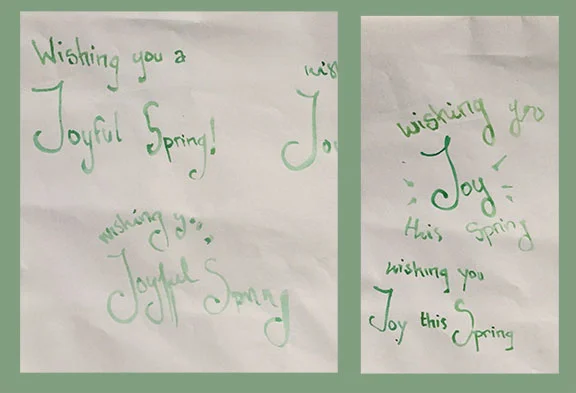 Wishing you a
Joyful Spring!
wishing y
Joyful Spring
wishing you
Joy
this Spring
wishing you
Joy this Spring